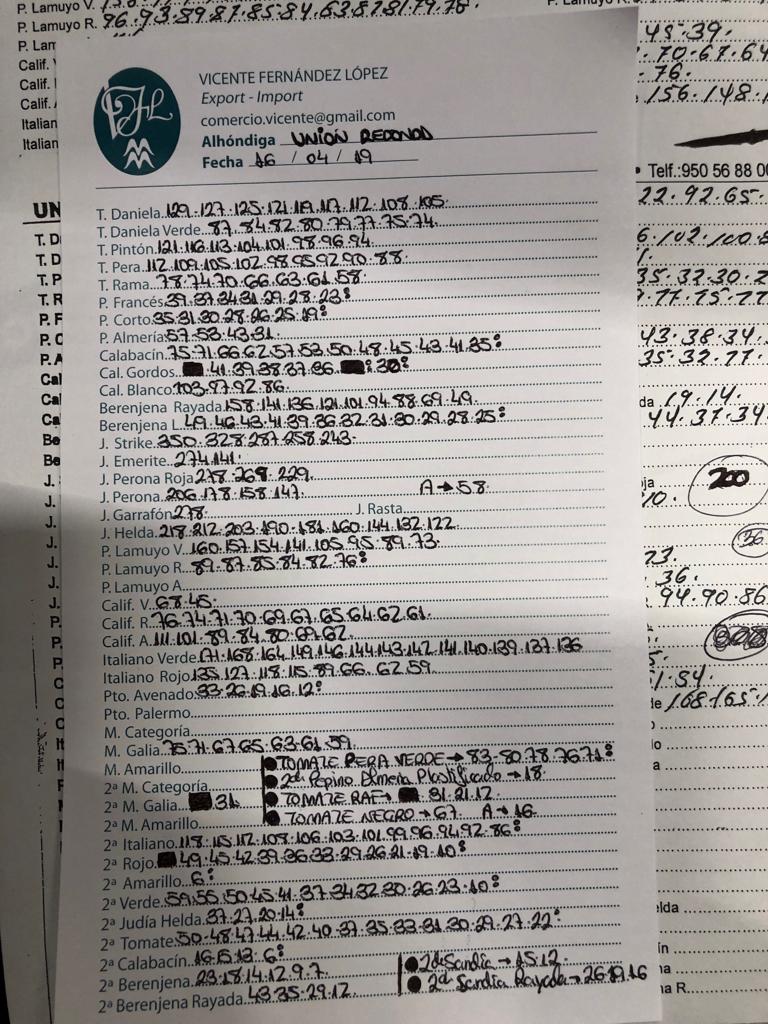 P. Lamuyo V.
P. Lamuyo R. 96.93.89.87.85.84.63.82.81.79.76.
VICENTE FERNÁNDEZ LÓPEZ
Export - Import
comercio.vicente@gmail.com
Alhóndiga UNION REDONDO
Fecha 16 / 04 / 19
T. Daniela 129.127.125.121.119.117.112.108.105.
T. Daniela Verde 87.84.82.80.79.77.75.74.
T. Pintón 121.116.113.104.101.98.96.94.
T. Pera 112.109.105.102.98.95.92.90.88.
T. Rama 78.74.70.66.63.61.58.
P. Francés 39.37.34.31.29.28.23:
P. Corto 35.31.30.28.26.25.19:
P. Almería 57.53.43.31.
Calabacín 75.71.66.62.57.53.50.48.45.43.41.35:
Cal. Gordos 41.39.38.37.36 :30:
Cal. Blanco 103.97.92.86.
Berenjena Rayada 158.141.136.121.101.94.88.69.49.
Berenjena L. 49.46.43.41.39.36.32.31.30.29.28.25:
J. Strike 350.328.287.258.243.
J. Emerite 274.141.
J. Perona Roja 278.269.229.
J. Perona 206.178.158.147. A→58.
J. Garrafón 278. J. Rasta
J. Helda 218.212.203.190.181.160.144.132.122.
P. Lamuyo V. 160.157.154.141.105.95.89.73.
P. Lamuyo R. 89.87.85.84.82.76:
P. Lamuyo A.
Calif. V. 68.45.
Calif. R. 76.74.71.70.69.67.65.64.62.61.
Calif. A. 111.101.89.84.80.69.62.
Italiano Verde 171.168.164.149.146.144.143.142.141.140.139.137.136
Italiano Rojo 135.127.118.115.89.66.62.59.
Pto. Avenado 33.26.19.16.12:
Pto. Palermo
M. Categoría
M. Galia 75.71.67.65.63.61.59.
M. Amarillo ●TOMATE PERA VERDE→83.80.78.76.71:
2ª M. Categoría ●2da Pepino Almeria Plastificado→18.
2ª M. Galia 31. ●TOMATE RAF→ 31.21.12.
2ª M. Amarillo ●TOMATE NEGRO→67. A→16.
2ª Italiano 118.115.112.108.106.103.101.99.96.94.92.86:
2ª Rojo 49.45.42.39.36.33.29.26.21.19.10:
2ª Amarillo 6:
2ª Verde 59.55.50.45.41.37.34.32.30.26.23.10:
2ª Judía Helda 37.27.20.14:
2ª Tomate 50.48.47.44.42.40.37.35.33.31.30.29.27.22:
2ª Calabacín 16.15.13.6:
2ª Berenjena 23.18.14.12.9.7. ●2da Sandia→15.12.
2ª Berenjena Rayada 43.35.29.12. ●2da Sandia Rayada→26.19.16
45.39.
.70.67.64
.76.
.156.148.1
Telf.:950 56 88 0
22.92.65.
35.32.30.2
43.38.34.
35.32.27.
19.14.
44.37.34
200
36
23.
36.
94.90.86
168.165.1